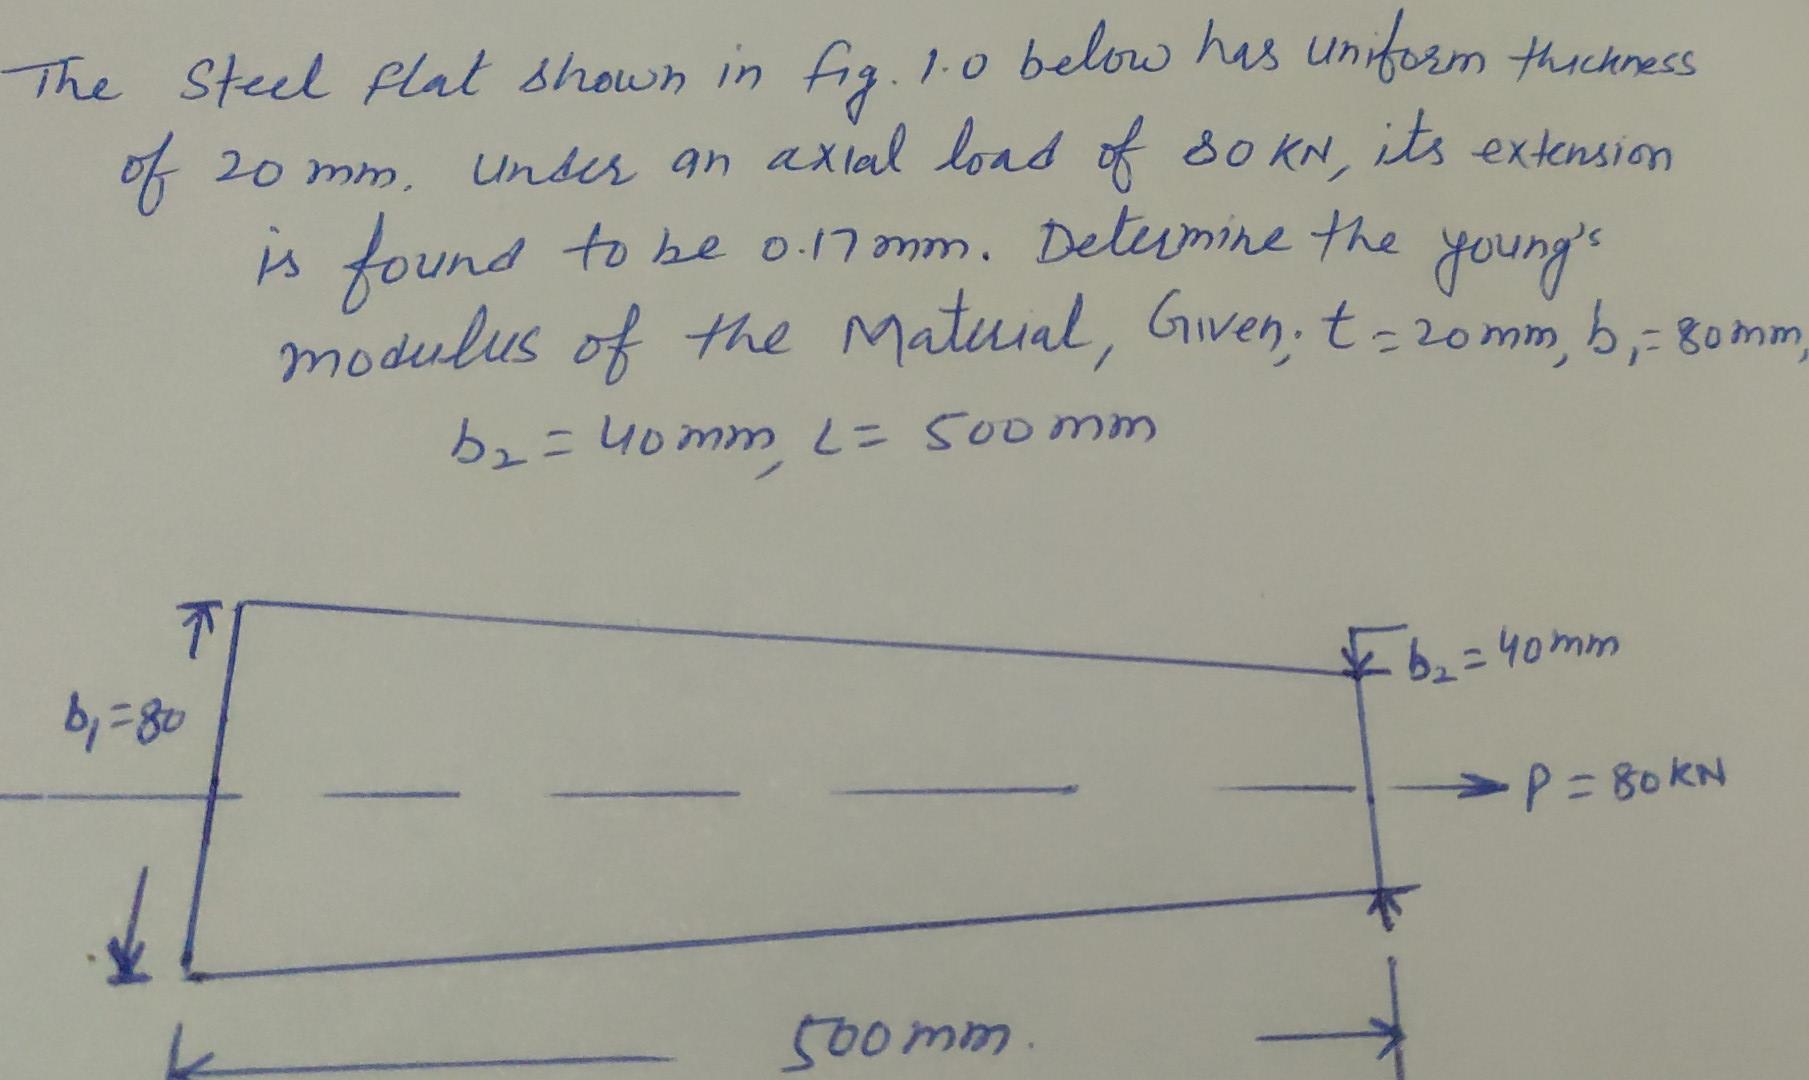 The Steel flat shown in fig. 1.0 below has uniform thickness
of 20 mm. Under an axial load of 80 KN, its extension
is found to be 0.17 mm. Determine the young's
modulus of the Material, Given; t = 20 mm, b₁ = 80 mm,
b₂ = 40 mm, L = 500 mm
b₂ = 40 mm
b₁ = 80
P = 80 KN
500 mm.